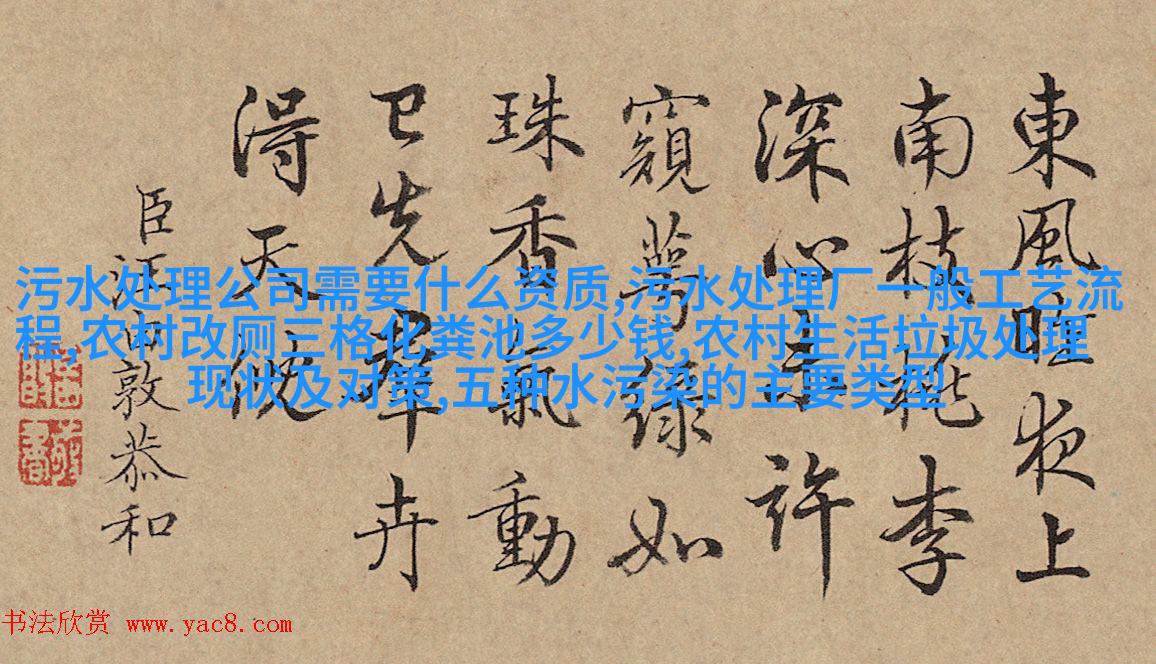 東風昨夜上
南枝桃李
深心未許
窺萼綠如
珠香氣動
已先羣卉
得天
臣汪由敦恭和
污水处理公司需要什么资质,污水处理厂一般工艺流
程,农村改厕三格化粪池多少钱,农村生活垃圾处理
现状及对策,五种水污染的主要类型
书法欣赏 www.yac8.com